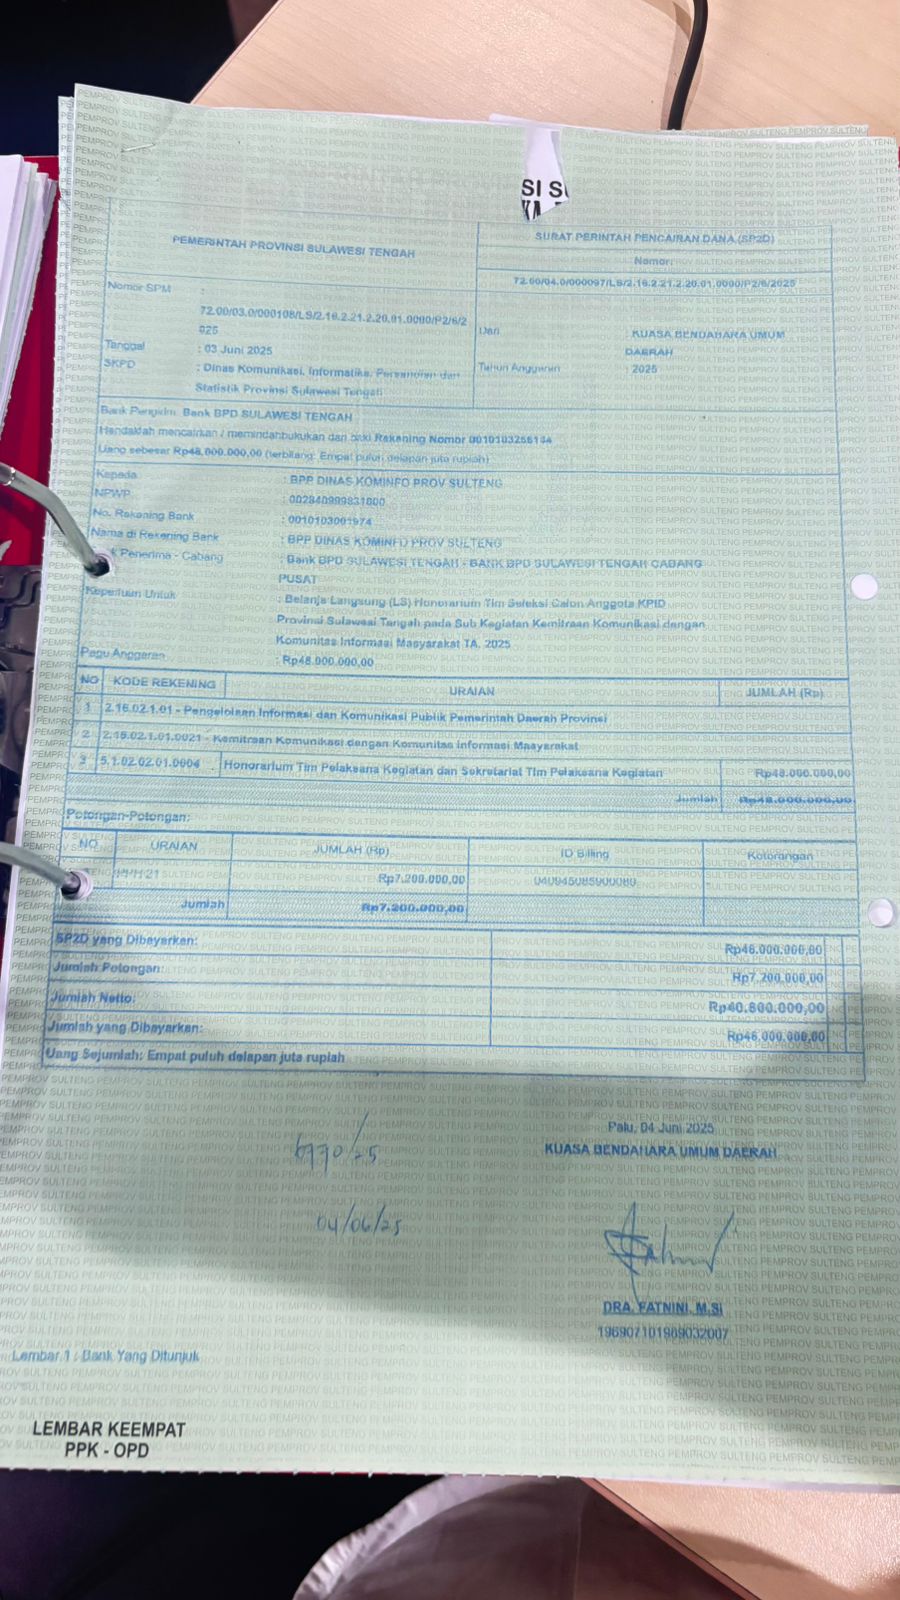 SI S
PEMERINTAH PROVINSI SULAWESI TENGAH
SURAT PERINTAH PENCAIRAN DANA (SP2D)
Nomor:
72.00/04.0/000097/LS/2.16.2.21.2.20.01.0000/P2/6/2025
Nomor SPM :
72.00/03.0/000108/LS/2.16.2.21.2.20.01.0000/P2/6/2
025
Tanggal : 03 Juni 2025
SKPD : Dinas Komunikasi, Informatika, Persandian dan
Statistik Provinsi Sulawesi Tengah
Dari : KUASA BENDAHARA UMUM
DAERAH
Tahun Anggaran : 2025
Bank Pengirim Bank BPD SULAWESI TENGAH
Hendaklah mencairkan / memindahbukukan dari baki Rekening Nomor
Uang sebesar Rp48.000.000,00 (terbilang: Empat puluh delapan juta rupiah)
Kepada : BPP DINAS KOMINFO PROV SULTENG
NPWP : 002840999831000
No. Rekening Bank : 0010103001974
Nama di Rekening Bank : BPP DINAS KOMINFO PROV SULTENG
Penerima - Cabang : Bank BPD SULAWESI TENGAH - BANK BPD SULAWESI TENGAH CABANG
PUSAT
Keperluan Untuk : Belanja Langsung (LS) Honorarium Tim Seleksi Calon Anggota KPID
Provinsi Sulawesi Tengah pada Sub Kegiatan Kemitraan Komunikasi dengan
Komunitas Informasi Masyarakat TA. 2025
Pagu Anggaran : Rp48.000.000,00
NO KODE REKENING URAIAN JUMLAH (Rp)
1 2.16.02.1.01 - Pengelolaan Informasi dan Komunikasi Publik Pemerintah Daerah Provinsi
2 2.16.02.1.01.0021 - Kemitraan Komunikasi dengan Komunitas Informasi Masyarakat
3 5.1.02.02.01.0004 Honorarium Tim Pelaksana Kegiatan dan Sekretariat Tim Pelaksana Kegiatan Rp48.000.000,00
Jumlah Rp48.000.000,00
Potongan-Potongan:
NO URAIAN JUMLAH (Rp) ID Billing Keterangan
21 Rp7.200.000,00
Jumlah Rp7.200.000,00
SP2D yang Dibayarkan: Rp48.000.000,00
Jumlah Potongan: Rp7.200.000,00
Jumlah Netto: Rp40.800.000,00
Jumlah yang Dibayarkan: Rp48.000.000,00
Uang Sejumlah: Empat puluh delapan juta rupiah
Palu, 04 Juni 2025
KUASA BENDAHARA UMUM DAERAH
04/06/25
DRA. FATNINI, M.Si
196907101989032007
Lembar 1 : Bank Yang Ditunjuk
LEMBAR KEEMPAT
PPK - OPD